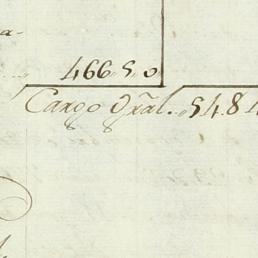 a-
466.5.0
Cargo Gral. 5484